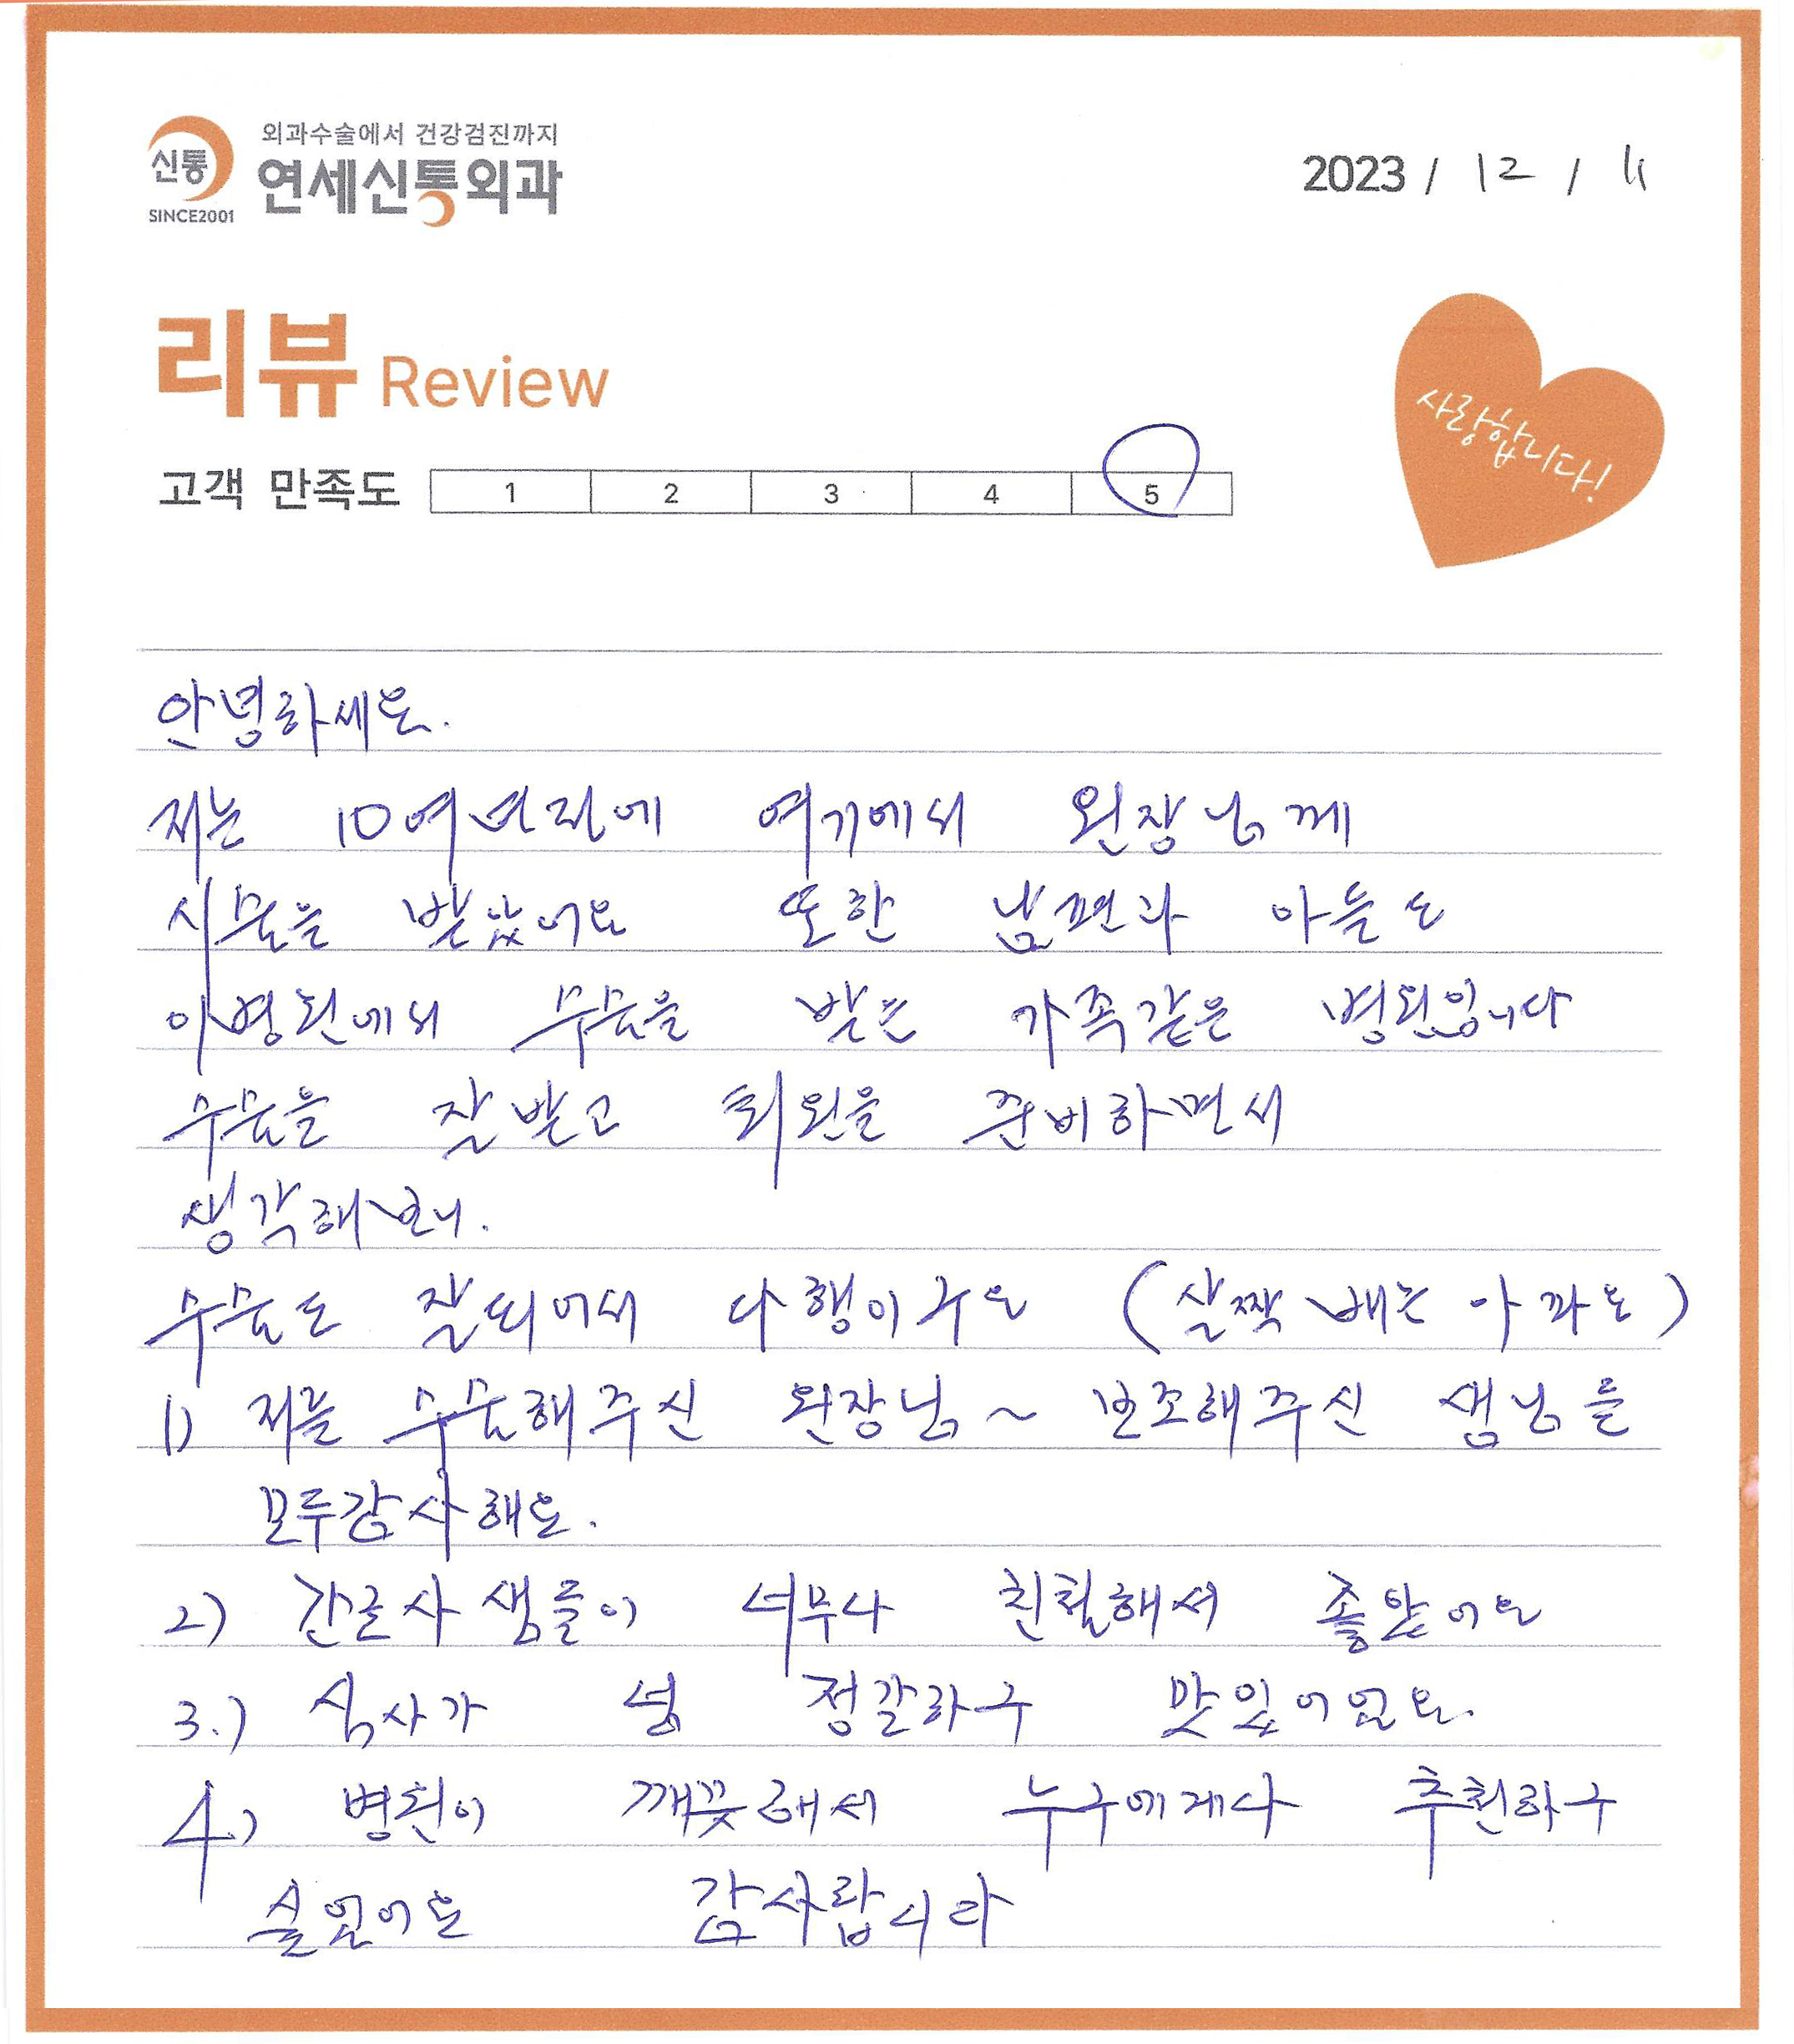 외과수술에서 건강검진까지
신통
연세신통외과
SINCE2001
2023 / 12 / 11
리뷰 Review
사랑합니다!
고객 만족도 1 2 3 4 5
안녕하세요.
저는 10여년전에 여기에서 원장님께
시술을 받았어요 또한 남편과 아들도
이병원에서 수술을 받은 가족같은 병원입니다
수술을 잘받고 퇴원을 준비하면서
생각해보니.
수술도 잘되어서 다행이구요 (살짝 배는 아파도)
1) 저를 수술해주신 원장님~ 보조해주신 샘님들
모두감사해요.
2) 간호사 샘들이 너무나 친절해서 좋았어요
3.) 식사가 넘 정갈하구 맛있어었요.
4.) 병원이 깨끗해서 누구에게다 추천하구
싶었어요 감사합니다